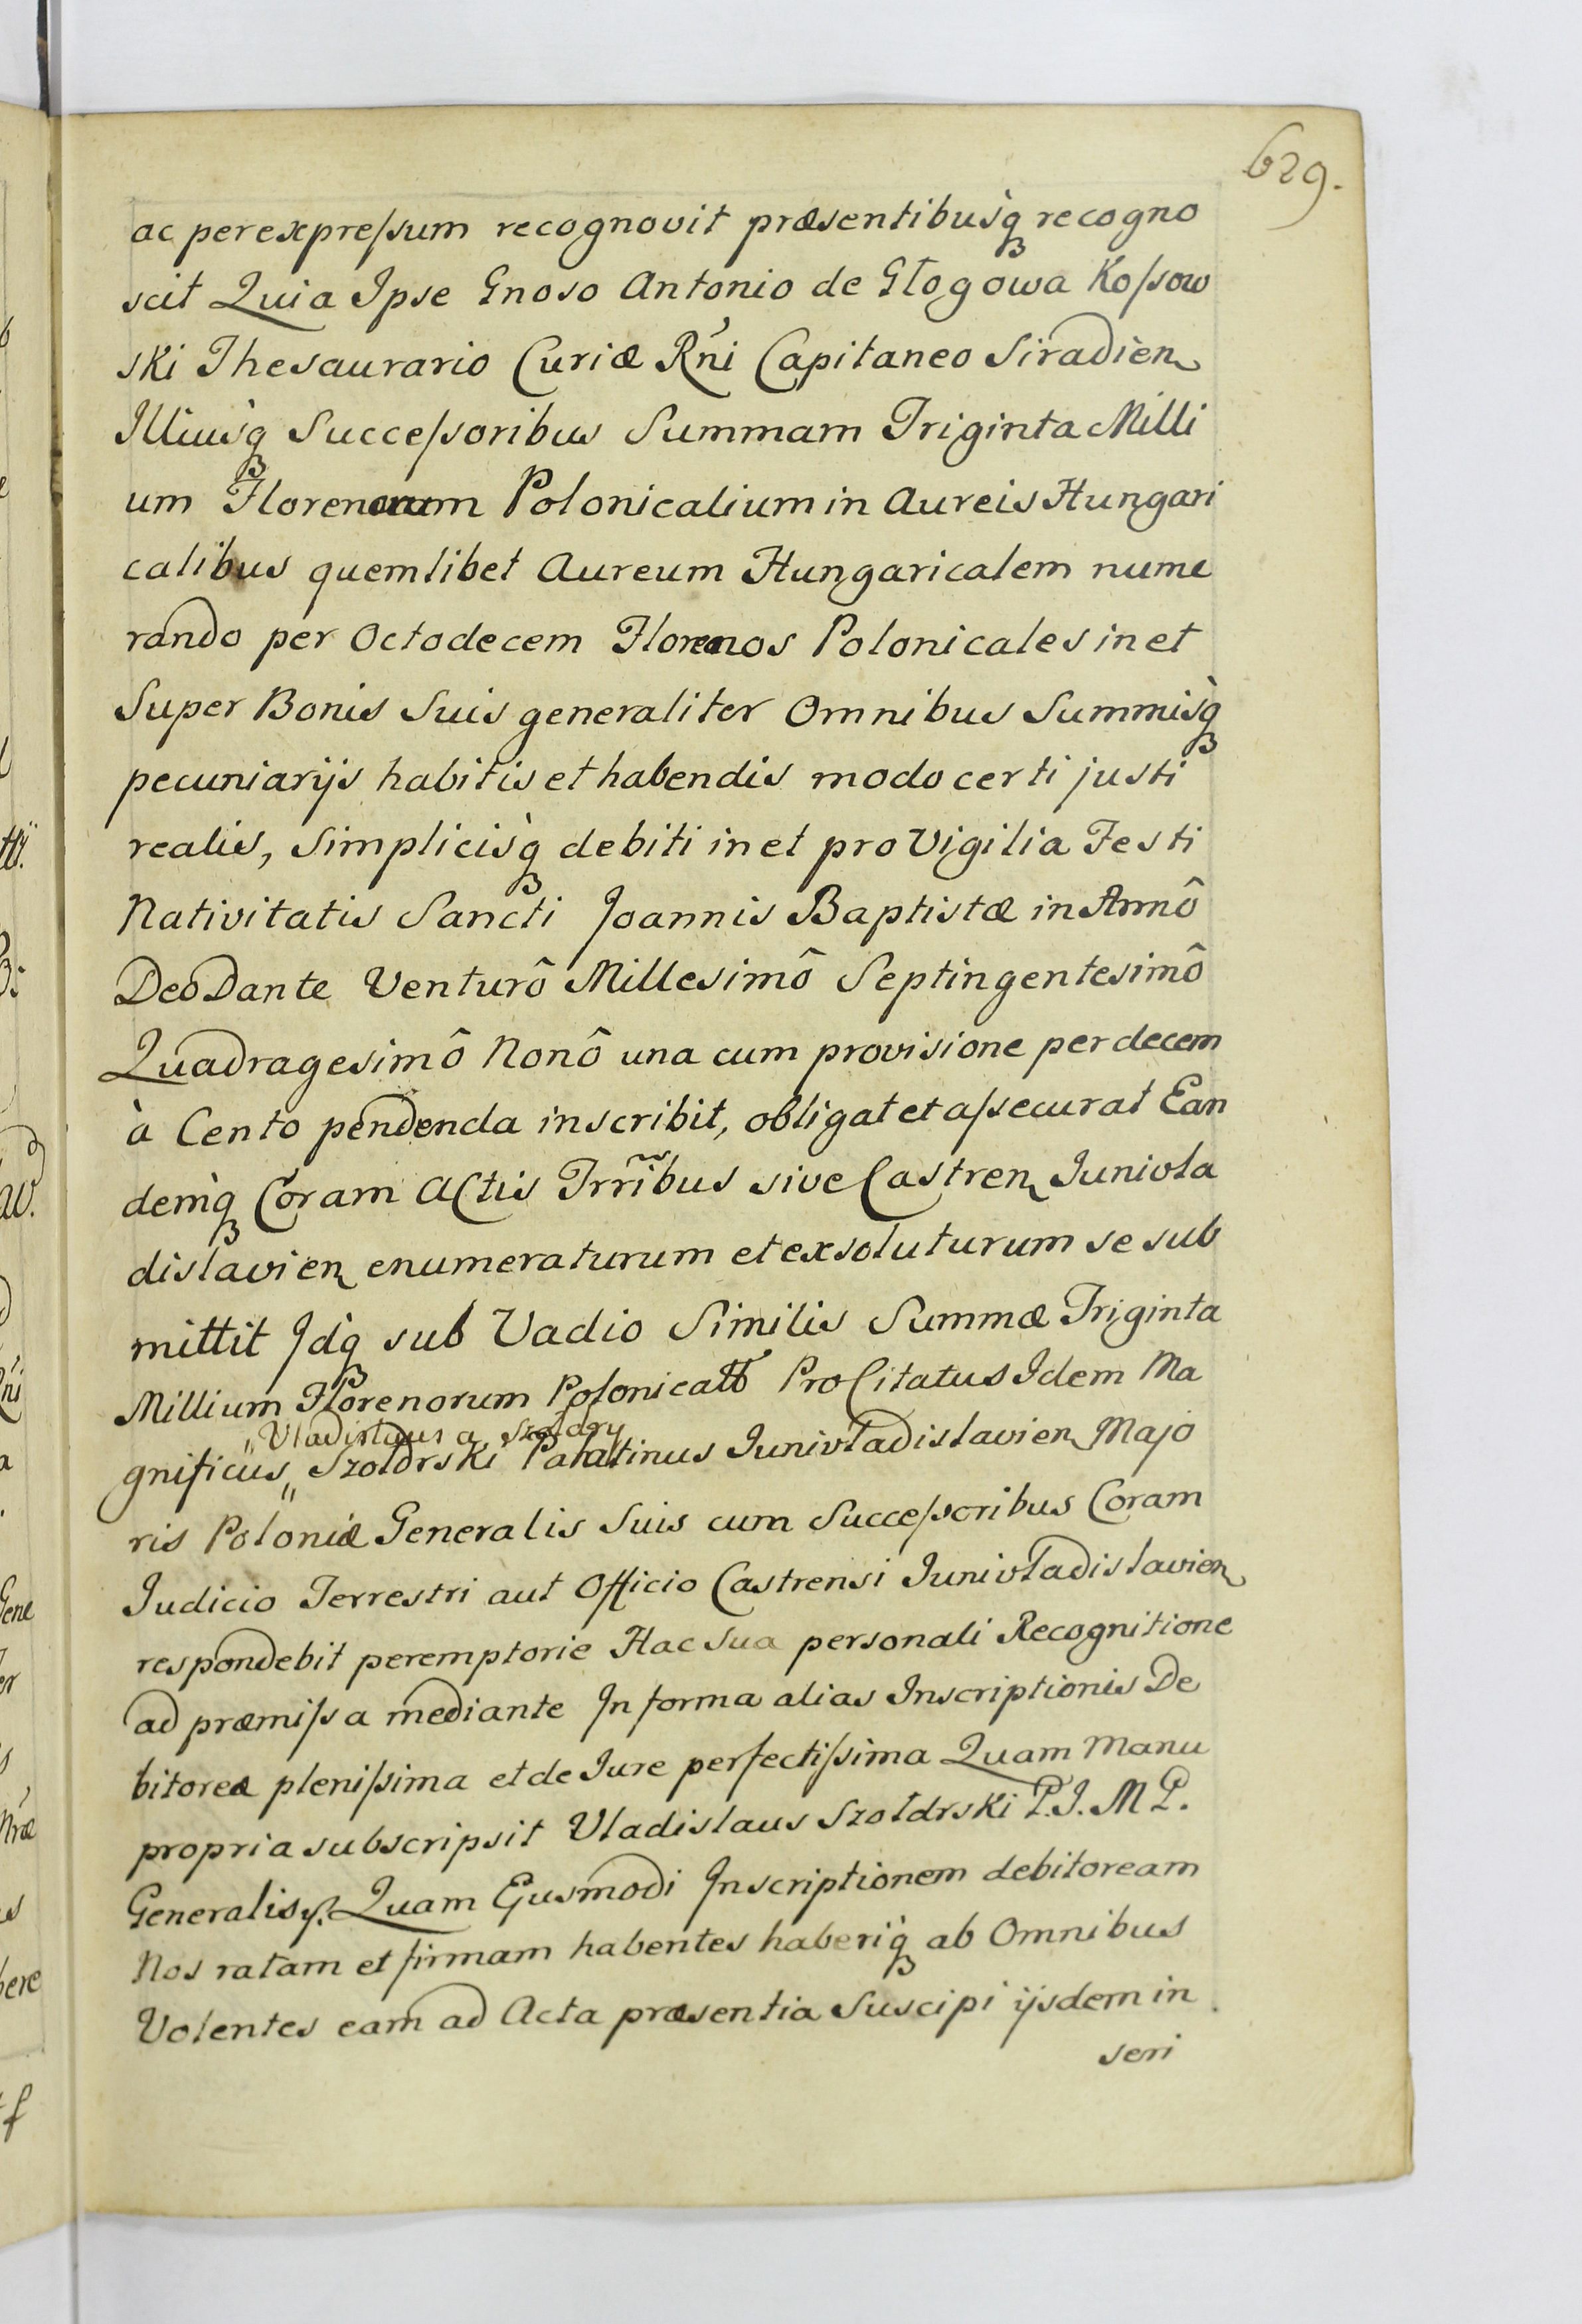 629.
ac per expressum recognovit præsentibusq̀ꝫ recogno
scit Quia Ipse Gnoso Antonio de Głogowa Kossow
ski Thesaurario Curiæ Rńi Capitaneo Siradien
Illiusq̀ꝫ Successoribus Summam Triginta Milli
um Florenorum Polonicalium in Aureis Hungari
calibus quemlibet Aureum Hungaricalem nume
rando per Octodecem Florenos Polonicales in et
Super Bonis Suis generaliter Omnibus Summisq̀ꝫ
pecuniarijs habitis et habendis modo certi justi
realis, Simplicisq̀ꝫ debiti in et pro Vigilia Festi
Nativitatis Sancti Joannis Baptistæ in Annô
Deo Dante Venturô Millesimô Septingentesimô
Quadragesimô Nonô una cum provisione per decem
à Cento pendenda inscribit, obligat et assecurat Ean
demq̀ꝫ Coram Actis Trr̃ibus sive Castren Junivla
dislavien enumeraturum et exsoluturum se sub
mittit Idq̀ꝫ sub Vadio Similis Summæ Triginta
Millium Florenorum Polonicall Pro Citatus Idem Ma
„Vladislaus a Szołdry
gnificus„ Szołdrski Palatinus Junivladislavien Majo
ris Poloniæ Generalis Suis cum Successoribus Coram
Judicio Terrestri aut Officio Castrensi Junivladislavien
respondebit peremptorie Hac Sua personali Recognitione
ad præmissa mediante In forma alias Inscriptionis De
bitoreæ plenissima et de Jure perfectissima Quam Manu
propria subscripsit Vladislaus Szołdrski P. J. M P.
Generalis Quam Ejusmodi Inscriptionem debitoream
Nos ratam et firmam habentes haberiq̀ꝫ ab Omnibus
Volentes eam ad Acta præsentia Suscipi ijsdem in
seri